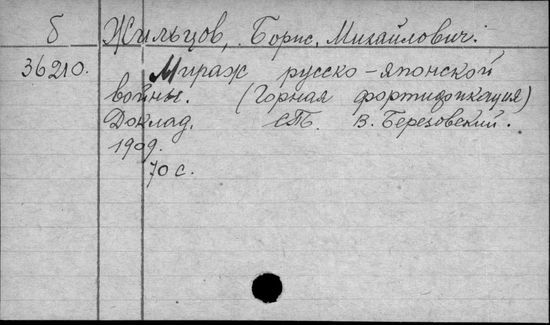 б Жильцов, Борис Михайлович.
36210. Мираж русско-японской
войны. (Горная фортификация)
Доклад. СПБ. В. Березовский.
1909.
70 с.